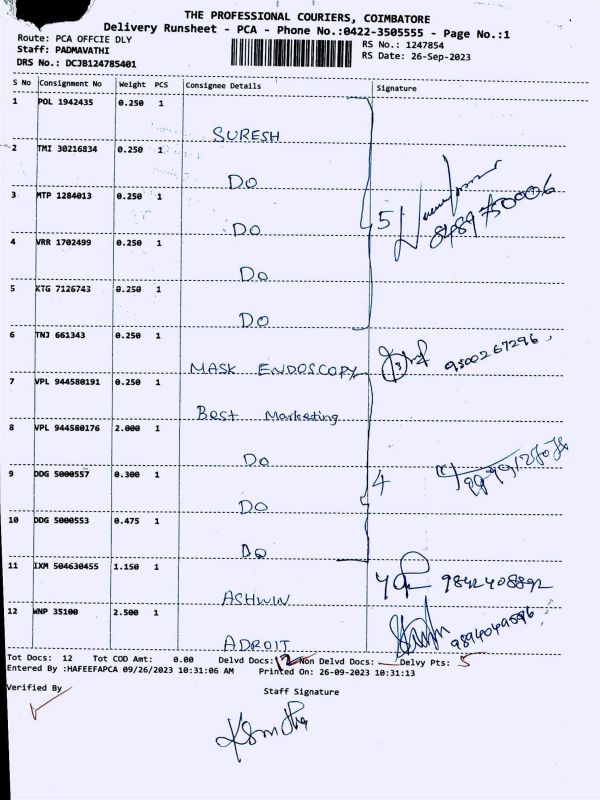 THE PROFESSIONAL COURIERS, COIMBATORE
Delivery Runsheet - PCA - Phone No.:0422-3505555 - Page No.:1
Route: PCA OFFCIE DLY
RS No.: 1247854
Staff: PADMAVATHI
RS Date: 26-Sep-2023
DRS No.: DCJB124785401
S No Consignment No Weight PCS Consignee Details Signature
1 POL 1942435 0.250 1
SURESH
2 TMI 30216834 0.250 1
DO
3 MTP 1284013 0.250 1
DO
5 8489750006
4 VRR 1702499 0.250 1
DO
5 KTG 7126743 0.250 1
DO
6 TNJ 661343 0.250 1
MASK ENDOSCOPY 9500267296
7 VPL 944580191 0.250 1
Best Marketing
8 VPL 944580176 2.000 1
DO
9 DDG 5000557 0.300 1
4
DO
10 DDG 5000553 0.475 1
DO
11 IXM 504630455 1.150 1
ASHWIN 9842408892
12 WNP 35100 2.500 1
ADROIT 9894049596
Tot Docs: 12 Tot COD Amt: 0.00 Delvd Docs: 12 Non Delvd Docs: Delvy Pts: 5
Entered By :HAFEEFAPCA 09/26/2023 10:31:06 AM Printed On: 26-09-2023 10:31:13
Verified By Staff Signature